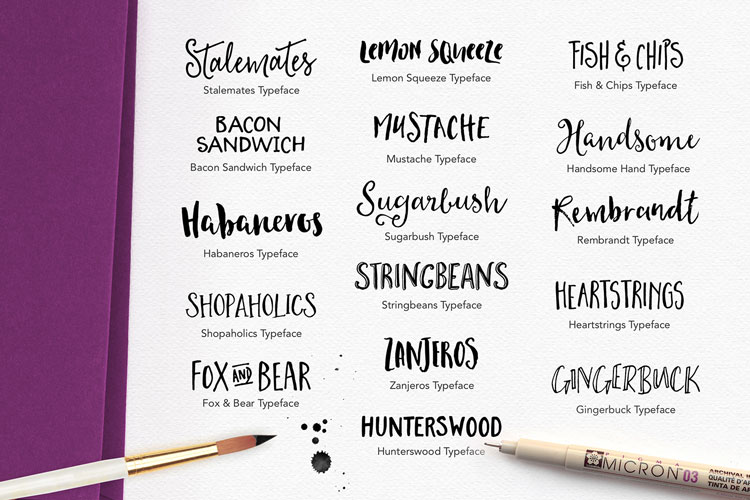 Stalemates
Stalemates Typeface
BACON
SANDWICH
Bacon Sandwich Typeface
Habaneros
Habaneros Typeface
SHOPAHOLICS
Shopaholics Typeface
FOX AND BEAR
Fox & Bear Typeface
LEMON SQUEEZE
Lemon Squeeze Typeface
MUSTACHE
Mustache Typeface
Sugarbush
Sugarbush Typeface
STRINGBEANS
Stringbeans Typeface
ZANJEROS
Zanjeros Typeface
HUNTERSWOOD
Hunterswood Typeface
FISH & CHIPS
Fish & Chips Typeface
Handsome
Handsome Hand Typeface
Rembrandt
Rembrandt Typeface
HEARTSTRINGS
Heartstrings Typeface
GINGERBUCK
Gingerbuck Typeface
PIGMA
MICRON 03
ARCHIVAL
QUALITÉ D'A
TINTA DE